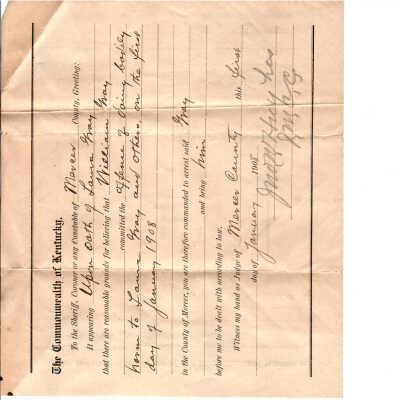 The Commonwealth of Kentucky,
To the Sheriff, Coroner or any Constable of Mercer County, Greeting:
It appearing Upon oath of Laura Gray
that there are reasonable grounds for believing that William Gray
committed the offence of doing bodily
harm to Laura Gray and others, on the first
day of January 1908
in the County of Mercer, you are therefore commanded to arrest said Gray
and bring him
before me to be dealt with according to law.
Witness my hand as Judge of Mercer County this first
day of January 1908